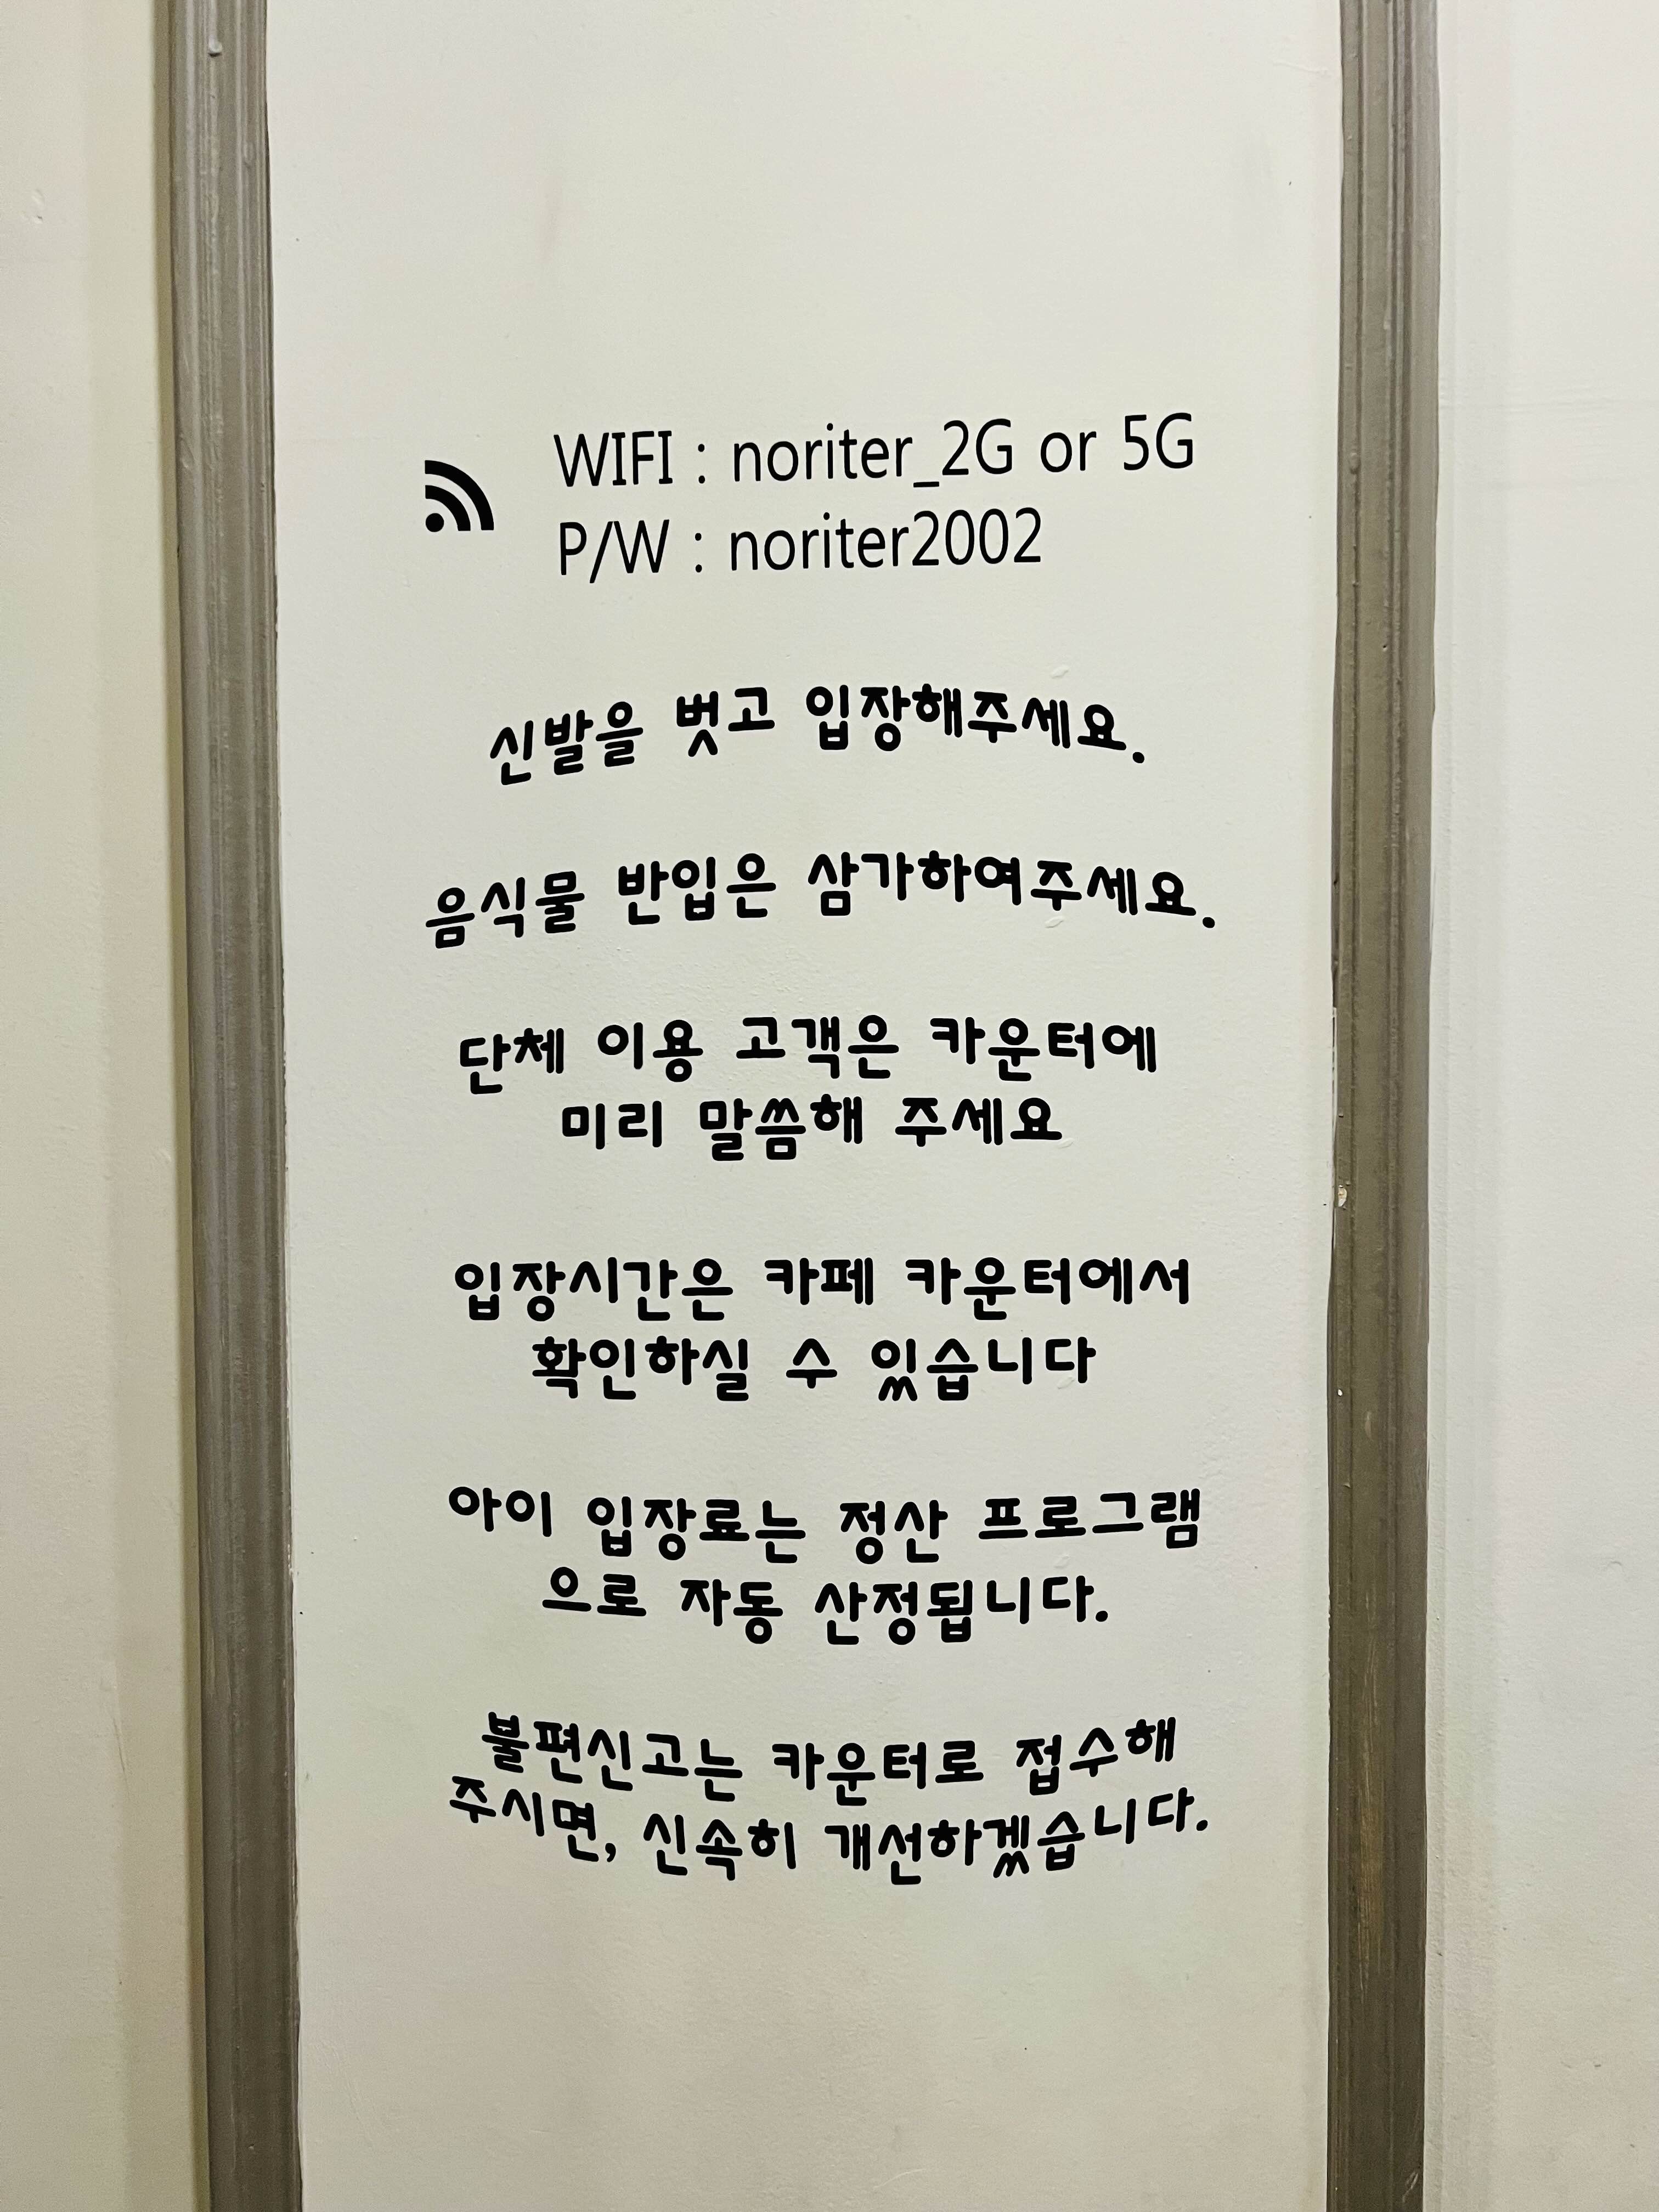 WIFI : noriter_2G or 5G
P/W : noriter2002
신발을 벗고 입장해주세요.
음식물 반입은 삼가하여주세요.
단체 이용 고객은 카운터에
미리 말씀해 주세요
입장시간은 카페 카운터에서
확인하실 수 있습니다
아이 입장료는 정산 프로그램
으로 자동 산정됩니다.
불편신고는 카운터로 접수해
주시면, 신속히 개선하겠습니다.